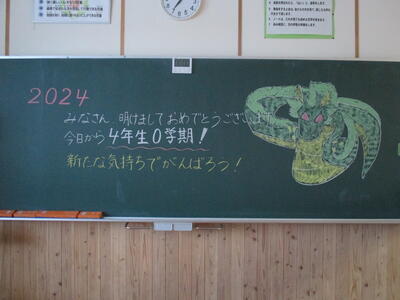 2024
みなさん 明けましておめでとうございます
今日から 4年生0学期！
新たな気持ちでがんばろう！